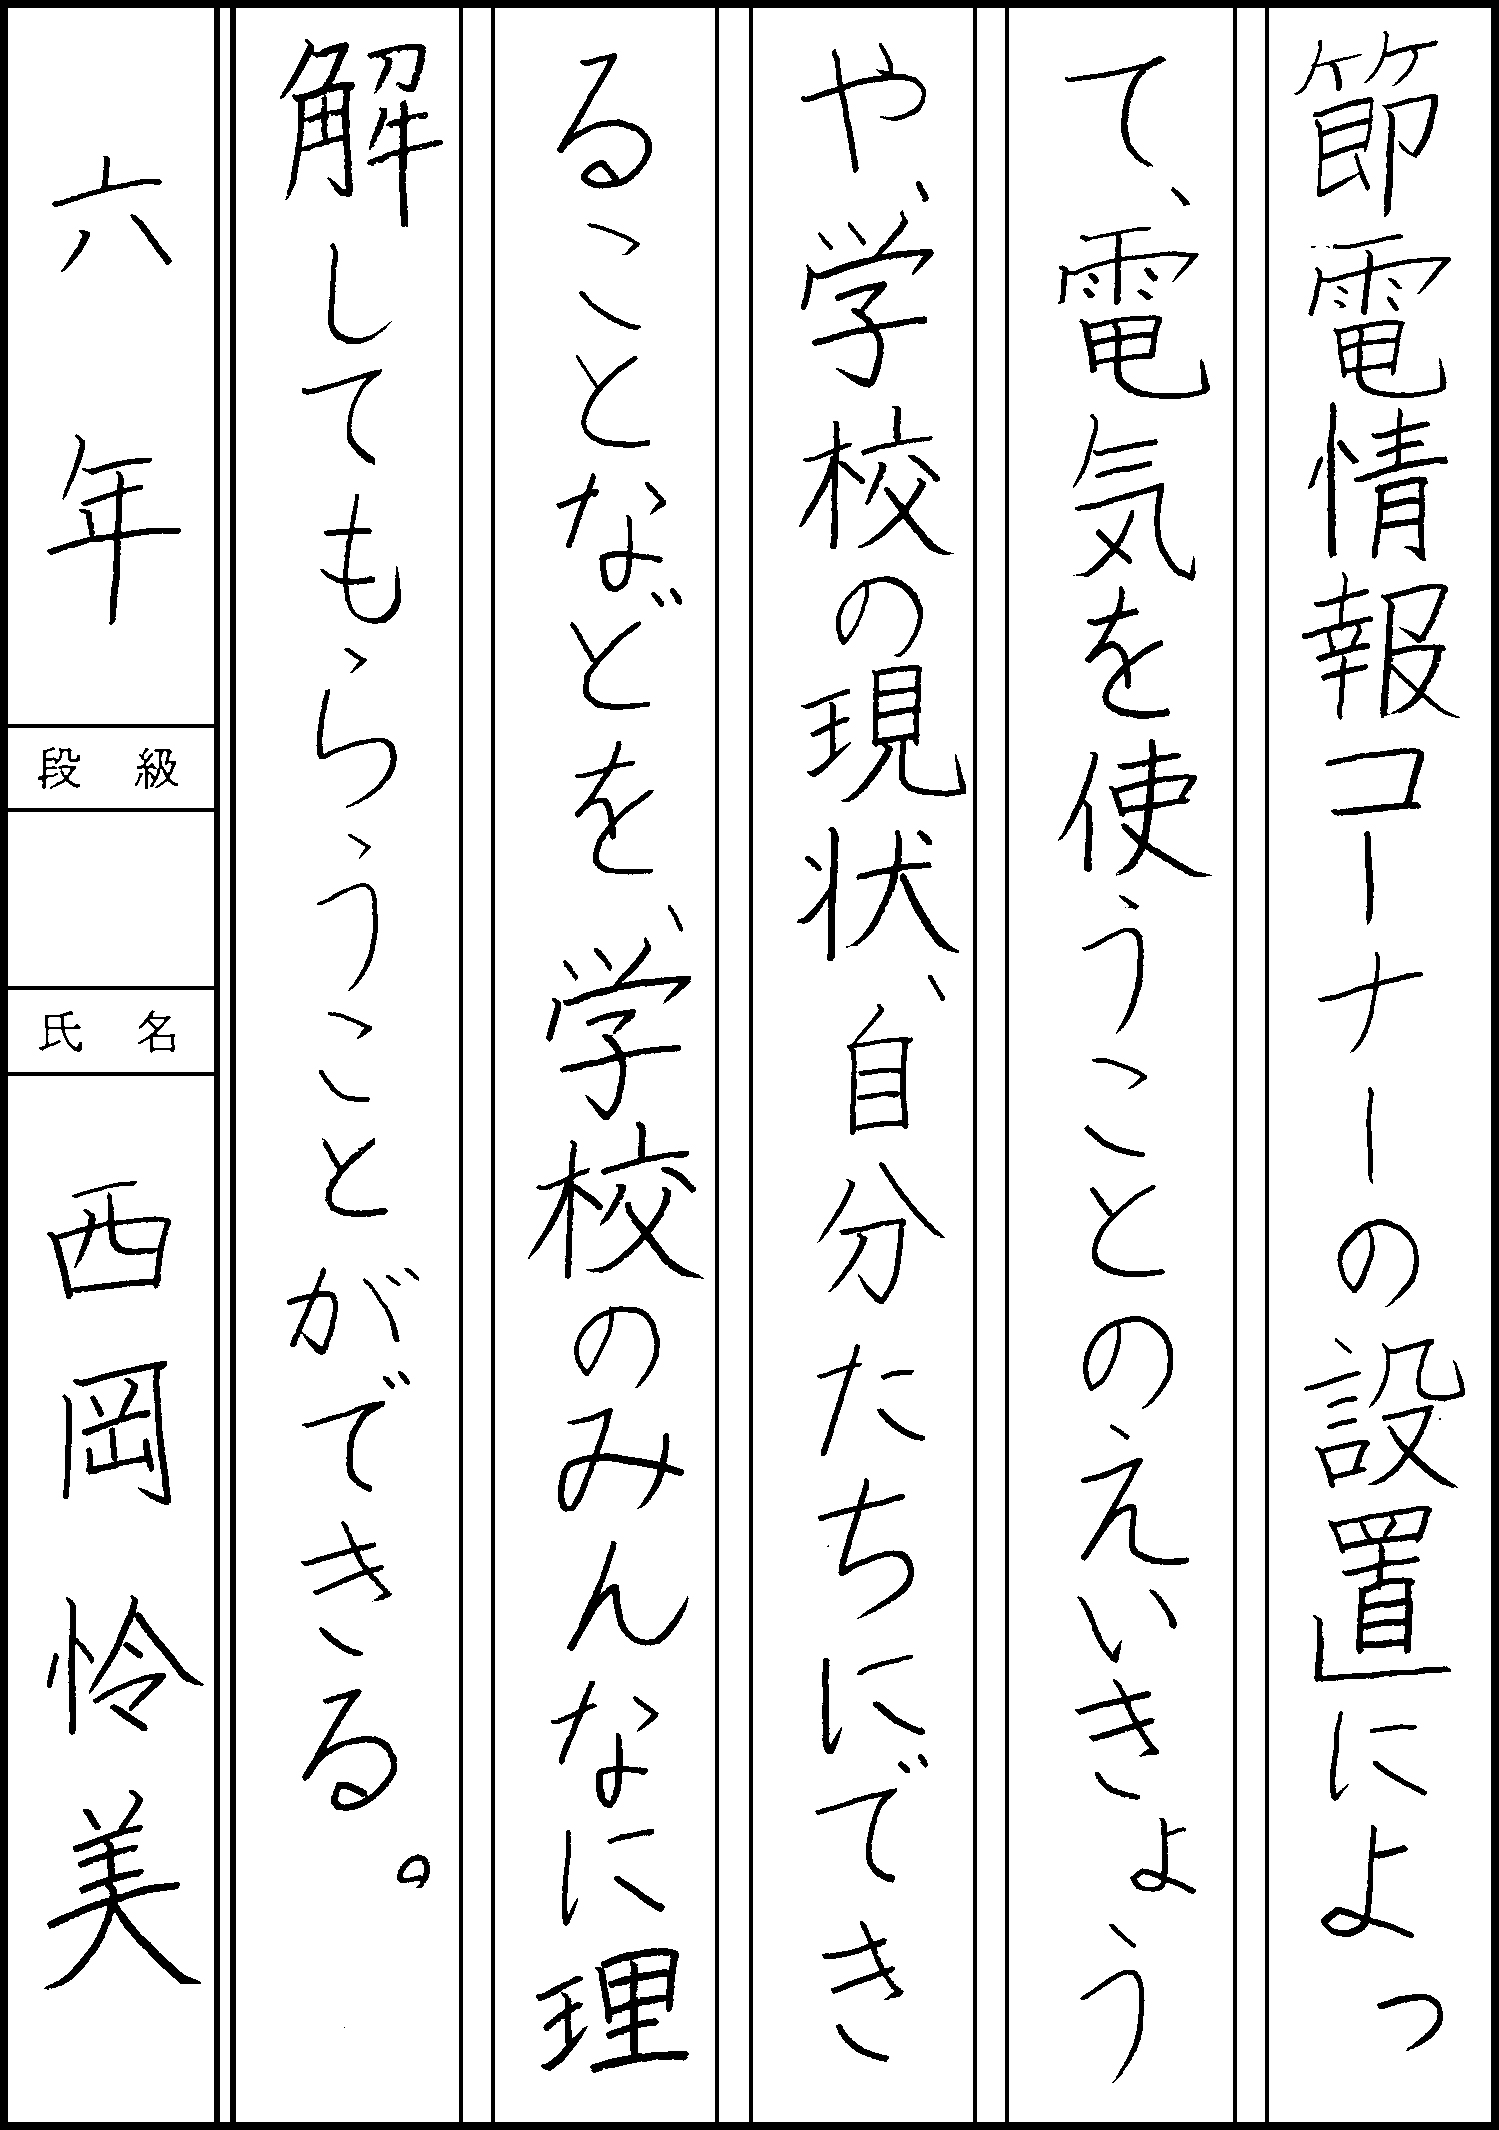 節電情報コーナーの設置によっ
て、電気を使うことのえいきょう
や、学校の現状、自分たちにでき
ることなどを、学校のみんなに理
解してもらうことができる。
六年
段級
氏名
西岡怜美